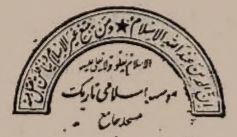 ان الدين عند الله الاسلام ★ ومن يبتغ غير الاسلام دينا فلن يقبل منه
الاسلام يعلو ولا يعلى عليه
موسسه اسلامی نیویارک
مسجد جامع